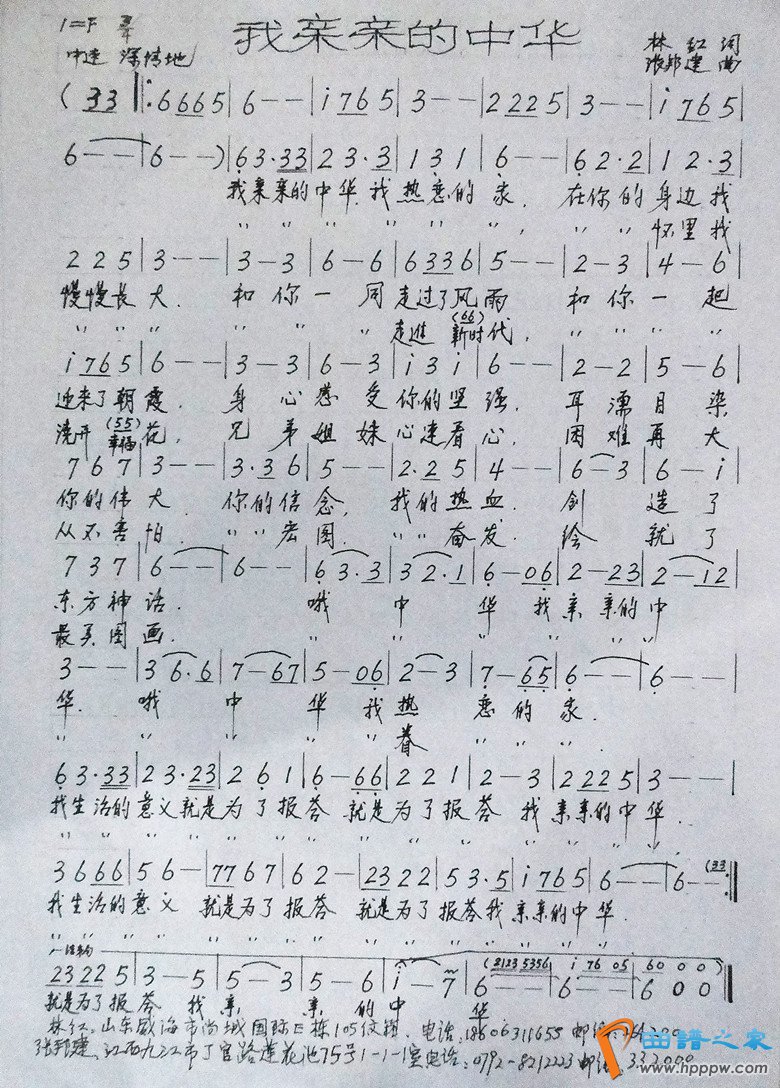 我亲亲的中华
1=F 3/4
中速 深情地
林红 词
张邦建 曲
( 33 |: 6665 | 6 - - | i765 | 3 - - | 2225 | 3 - - | i765 |
6 - - | 6 - - ) | 63·33 | 23·3 | 131 | 6 - - | 62·2 | 12·3 |
我亲亲的中华,我热恋的家. 在你的身边我
〃 〃 〃 〃 〃 〃 〃 怀里我
225 | 3 - - | 3 - 3 | 6 - 6 | 6336 | 5 - - | 2 - 3 | 4 - 6 |
慢慢长大. 和你一同走过了风雨 和你一起
〃 〃 〃 〃 〃 〃 走进(66)新时代, 〃 〃 〃
i765 | 6 - - | 3 - 3 | 6 - 3 | i3i | 6 - - | 2 - 2 | 5 - 6 |
迎来了朝霞. 身心感受你的坚强. 耳濡目染
浇开(55)幸福花, 兄弟姐妹心连着心, 困难再大
767 | 3 - - | 3·36 | 5 - - | 2·25 | 4 - - | 6 - 3 | 6 - i |
你的伟大. 你的信念, 我的热血. 创造了
从不害怕. 〃 〃 宏图. 〃 〃 奋发. 绘就了
737 | 6 - - | 6 - - | 63·3 | 32·1 | 6 - 06 | 2 - 23 | 2 - 12 |
东方神话. 哦中华我亲亲的中
最美图画. 〃 〃 〃 〃 〃 〃
3 - - | 36·6 | 7 - 67 | 5 - 06 | 2 - 3 | 7 - 65 | 6 - - | 6 - - |
华. 哦中华我热恋的家.
〃 〃 〃 〃 〃 眷 〃 〃
63·33 | 23·23 | 261 | 6 - 66 | 221 | 2 - 3 | 2225 | 3 - - |
我生活的意义就是为了报答 就是为了报答 我亲亲的中华.
〃 〃 〃 〃 〃 〃 〃 〃
3666 | 56 - | 7767 | 62 - | 2322 | 53·5 | i765 | 6 - - | 6 - (33 :|
我生活的意义 就是为了报答 就是为了报答我亲亲的中华.
〃 〃 〃 〃 〃 〃 〃
结构
23225 | 3 - 5 | 5 - 3 | 5 - 6 | i - 7 | 6 (21235356 - - | i 76 05 6 - - | 60 0 0 ) 6 0 0 ‖
就是为了报答 我亲亲的中华
林红. 山东威海市尚城国际E栋105 电话,18606311655
张邦建. 江西九江市丁官路莲花池75号1-1-1室电话:0792-8212223 邮编 332000
曲谱之家
www.hppw.com